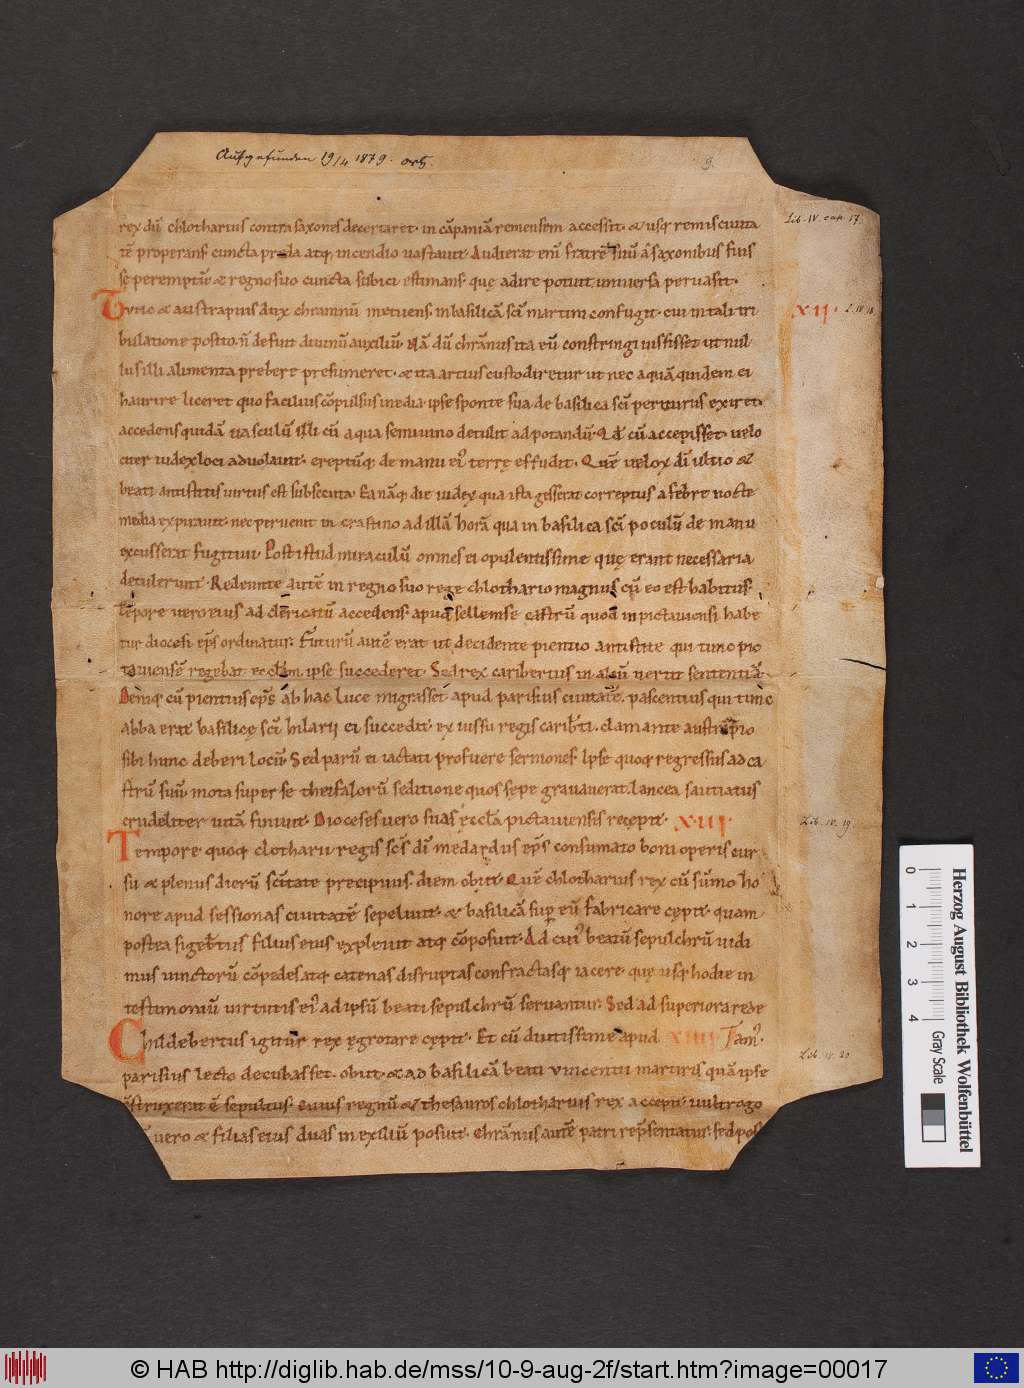 Aufgefunden 19/4 1879. orh.
9.
rex dũ chlotharius contra saxones decertaret· in cãpaniã remensem accessit· & usq; remis ciuita
tẽ properans cuncta preda atq; incendio uastauit· Audierat enĩ fratrẽ suũ a saxonibus suis
se peremptũ & regno suo cuncta subici estimans quę adire potuit uniuersa peruasit·
Lib. IV. cap. 17.
Tunc & austrapius dux chramnũ metuens in basilicã scĩ martini confugit· cui in tali tri
XII·
L. IV. 18
bulatione posito n̄ defuit diuinũ auxiliũ· Nã dũ chrãnus ita eũ constringi iussisset ut nul
lus illi alimenta prebere presumeret· & ita artius custodiretur ut nec aquã quidem ei
haurire liceret quo facilius cõpulsus inedia ipse sponte sua de basilica scĩ periturus exiret·
accedens quidã uasculũ illi cũ aqua semiuiuo detulit ad potandũ· Qđ cũ accepisset uelo
citer iudex loci aduolauit· ereptũq; de manu ei' terrę effudit· Quẽ uelox dĩ ultio &
beati antistitis uirtus est subsecuta· Ea nãq; die iudex qua ista gesserat correptus a febre nocte
media expirauit· nec peruenit in crastino ad illã horã qua in basilica scĩ poculũ de manu
excusserat fugitiui· Post istud miraculũ omnes ei opulentissime quę erant necessaria
detulerunt· Redeunte autẽ in regno suo rege chlothario magnus cũ eo est habitus·
tẽpore uero eius ad clericatũ accedens apud sellense castrũ quod in pictauiensi habe
tur diocesi ep̄s ordinatur· Futurũ autẽ erat ut decidente pientio antistite qui tunc pic
tauiensẽ regebat ecclam ipse succederet· Sed rex caribertus in aliũ uertit sententiã
Deniq; cũ pientius ep̄s ab hac luce migrasset apud parisius ciuitatẽ· pascentius qui tunc
abba erat basilicę scĩ hilarii ei succedit· ex iussu regis caribti· clamante austrapio
sibi hunc deberi locũ· Sed parũ ei iactati profuere sermones· Ipse quoq; regressus ad ca
strũ suũ· mota super se theifalorũ seditione quos sepe grauauerat· lancea sauciatus
crudeliter uitã finiuit· Dioceses uero suas ęccla pictauiensis recepit·
XIII·
Lib. IV. 19.
Tempore quoq; clotharii regis scs dĩ medardus ep̄s consumato boni operis cur
su & plenus dierũ scitate precipuus· diem obiit· Quẽ chlotharius rex cũ sũmo ho
nore apud sessionas ciuitatẽ sepeliuit· & basilicã sup eũ fabricare cępit· quam
postea sigebtus filius eius expleuit atq; cõposuit· Ad cui' beatũ sepulchrũ uidi
mus uinctorũ cõpedes atq; catenas disruptas confractasq; iacere· quę usq; hodie in
testimoniũ uirtutis ei' ad ipsũ beati sepulchrũ seruantur· Sed ad superiora rede
Childebertus igitur rex ęgrotare cępit· Et cũ diutissime apud
XIIII
Tam'·
Lib. IV. 20
parisius lecto decubasset· obiit· & ad basilicã beati uincentii martiris quã ipse
cõstruxerat ẽ sepultus· cuius regnũ & thesauros chlotharius rex accepit· uultrogo
uero & filias eius duas in exiliũ posuit· Chrãnus autẽ patri rep̄sentatur· sed pos
Herzog August Bibliothek Wolfenbüttel
0 1 2 3 4
Gray Scale
© HAB http://diglib.hab.de/mss/10-9-aug-2f/start.htm?image=00017